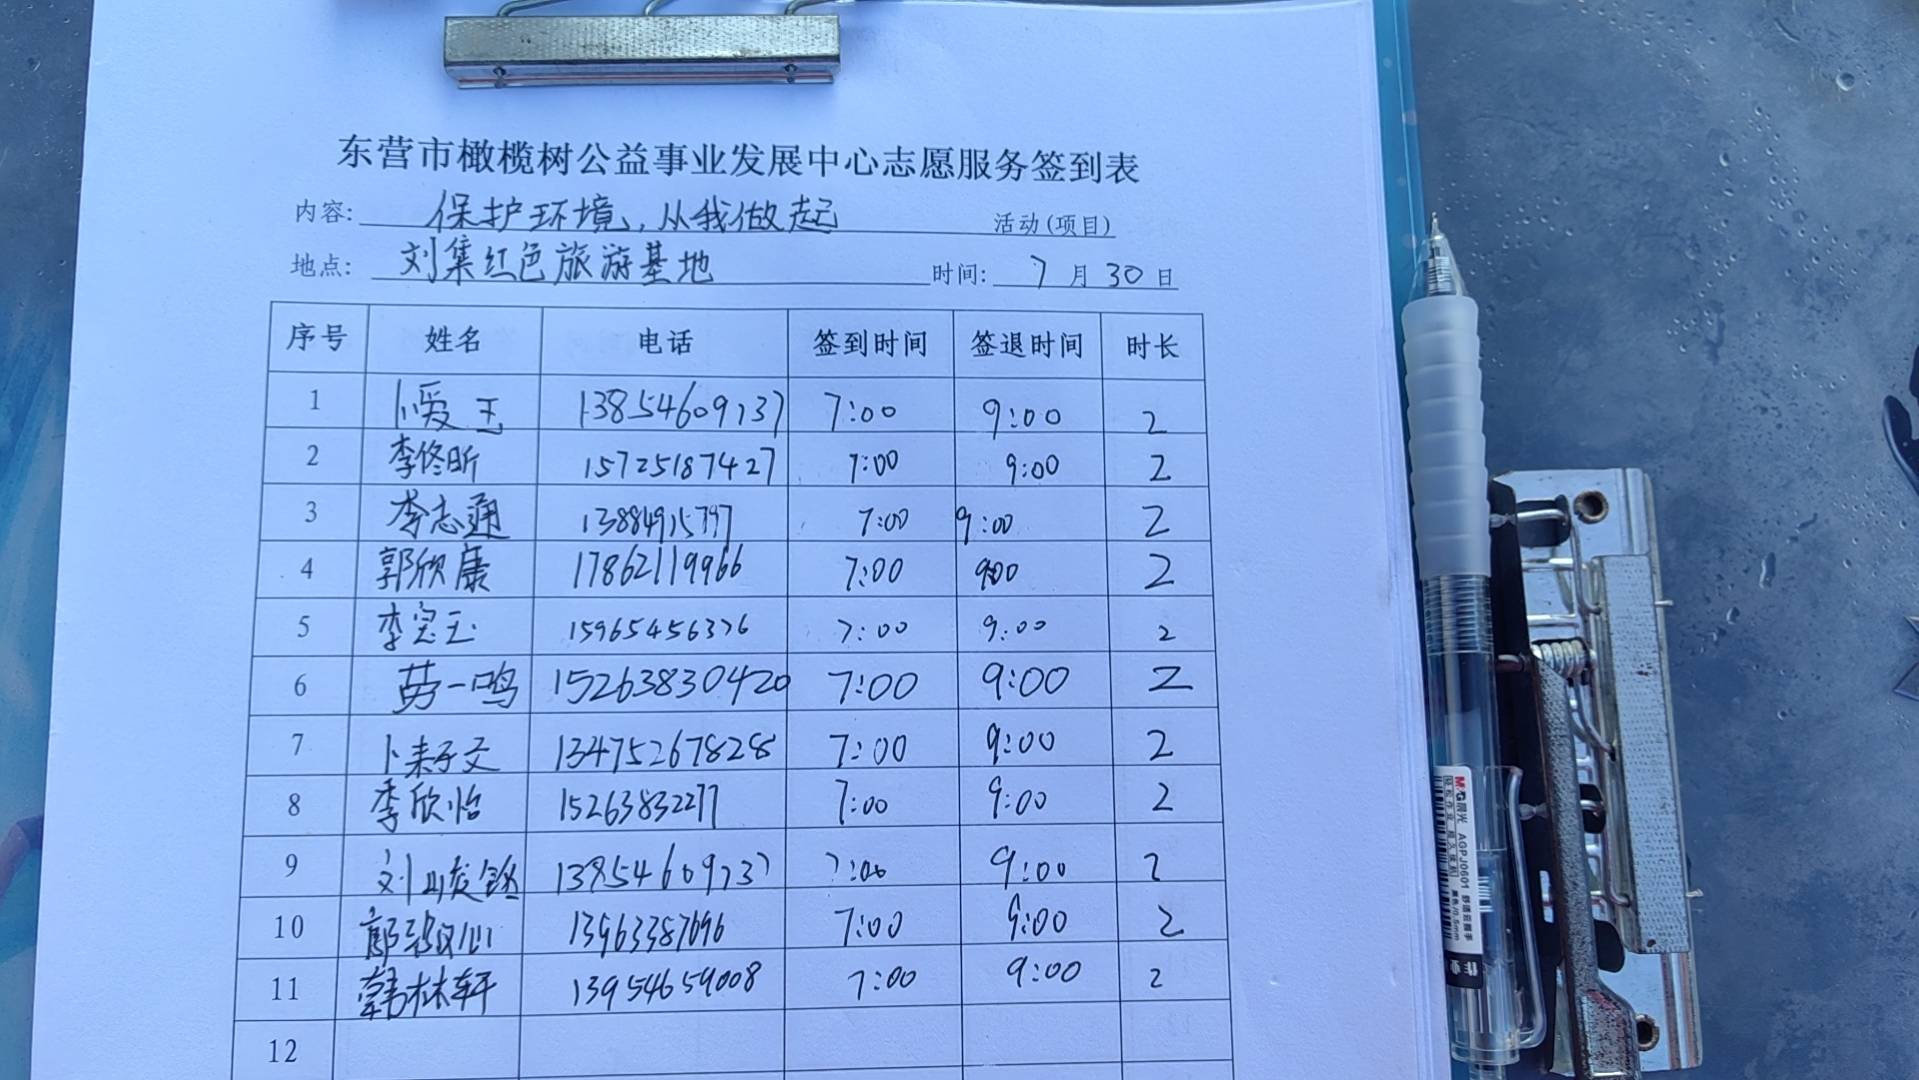 东营市橄榄树公益事业发展中心志愿服务签到表
内容: 保护环境,从我做起 活动(项目)
地点: 刘集红色旅游基地 时间: 7月30日
序号 姓名 电话 签到时间 签退时间 时长
1 卜爱玉 13854609737 7:00 9:00 2
2 李佟昕 15725187427 7:00 9:00 2
3 李志通 13884915797 7:00 9:00 2
4 郭欣康 17862119966 7:00 9:00 2
5 李宝玉 15965456376 7:00 9:00 2
6 苗一鸣 15263830420 7:00 9:00 2
7 卜耒子文 13475267828 7:00 9:00 2
8 李欣怡 15263832277 7:00 9:00 2
9 刘 13854609737 7:00 9:00 2
10 郭 13963387696 7:00 9:00 2
11 韩林轩 13954659008 7:00 9:00 2
12
M&G晨光 AGPJ0601 舒适云握手
黑色/0.5mm
作业